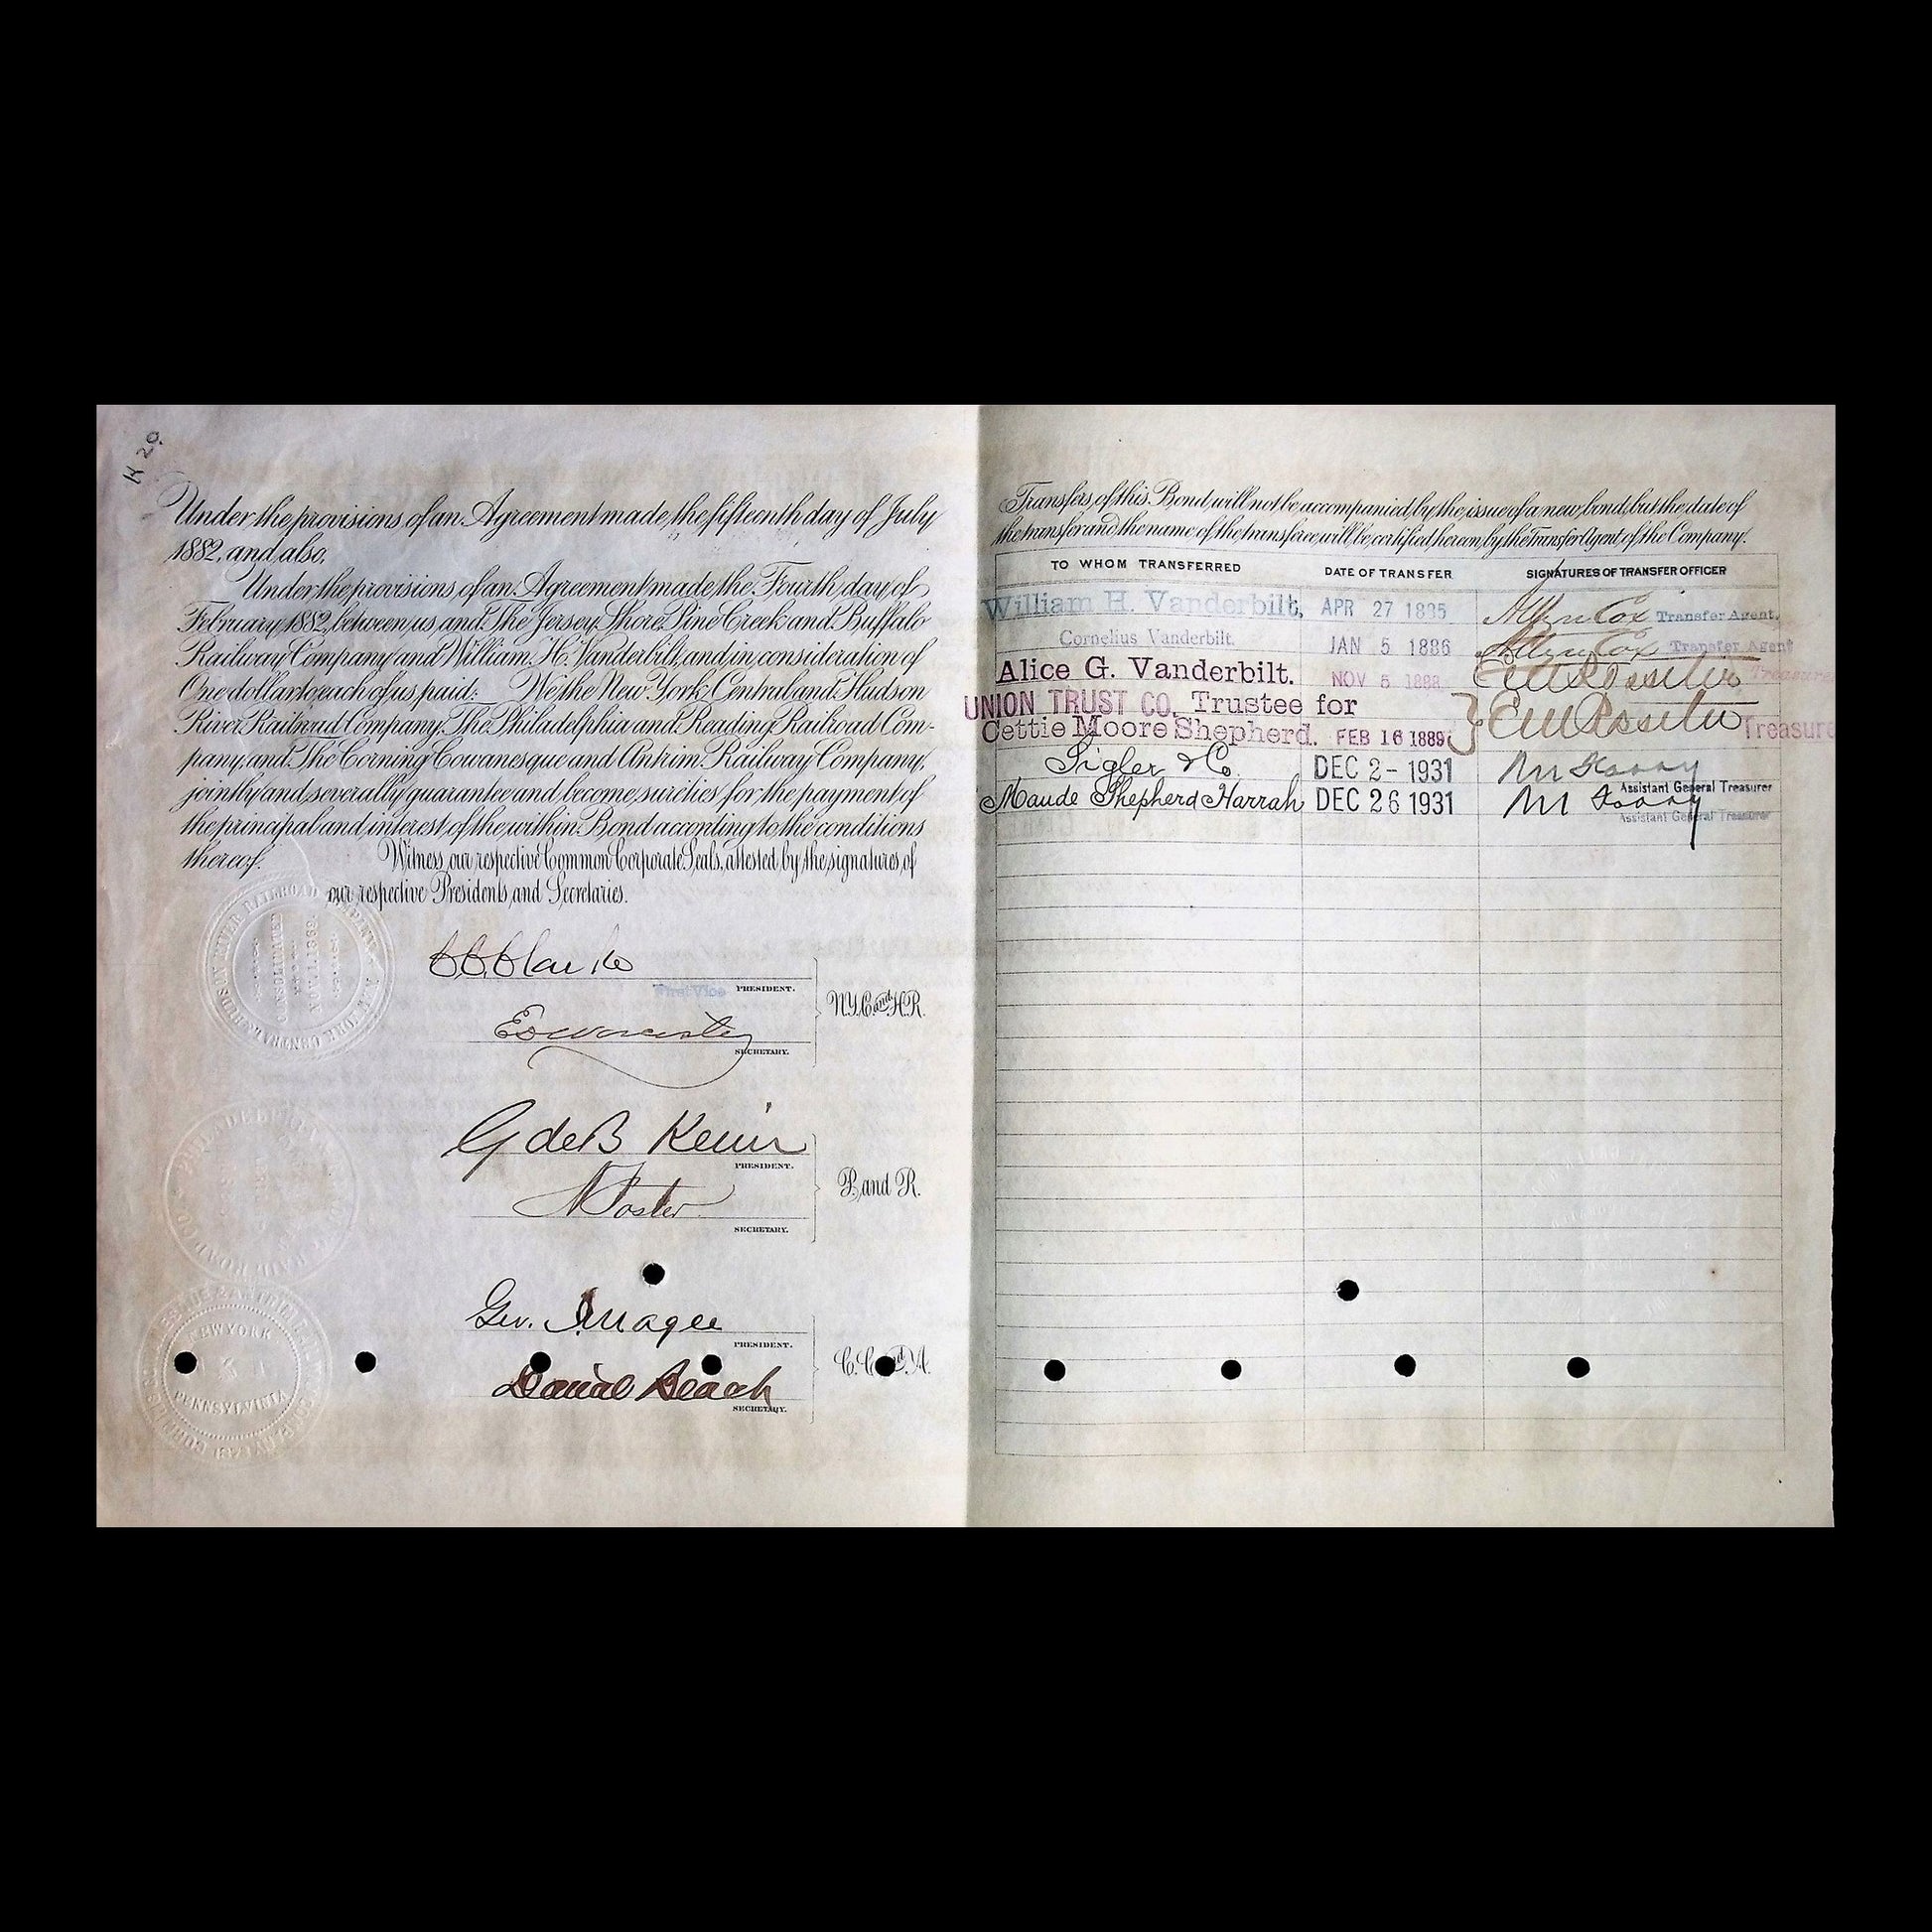 H 20.
Under the provisions of an Agreement made the fifteenth day of July
1882, and also,
Under the provisions of an Agreement made the Fourth day of
February 1882, between us and The Jersey Shore Pine Creek and Buffalo
Railway Company and William H. Vanderbilt, and in consideration of
One dollar to each of us paid: We the New York Central and Hudson
River Railroad Company, The Philadelphia and Reading Railroad Com-
pany, and The Corning Cowanesque and Antrim Railway Company,
jointly and severally guarantee and become sureties for the payment of
the principal and interest of the within Bond according to the conditions
thereof. Witness our respective Common Corporate Seals, attested by the signatures of
our respective Presidents and Secretaries.
CONSOLIDATED
NOV. 1, 1869.
First Vice PRESIDENT.
N.Y.C. and H.R.
E D Worcester
SECRETARY.
G de B Keim
PRESIDENT.
P. and R.
SECRETARY.
Geo. J. Magee
PRESIDENT.
C.C. and A.
Daniel Beach
SECRETARY.
NEW YORK
PENNSYLVANIA
Transfers of this Bond will not be accompanied by the issue of a new bond, but the date of
the transfer and the name of the transferee will be certified hereon by the Transfer Agent of the Company.
TO WHOM TRANSFERRED DATE OF TRANSFER SIGNATURES OF TRANSFER OFFICER
William H. Vanderbilt, APR 27 1885 Allyn Cox Transfer Agent.
Cornelius Vanderbilt. JAN 5 1886 Allyn Cox Transfer Agent
Alice G. Vanderbilt. NOV 5 1888 E V W Rossiter Treasurer
UNION TRUST CO. Trustee for
Cettie Moore Shepherd. FEB 16 1889 E V W Rossiter Treasure
Sigler & Co. DEC 2- 1931
Assistant General Treasurer
Maude Shepherd Harrah DEC 26 1931
Assistant General Treasurer